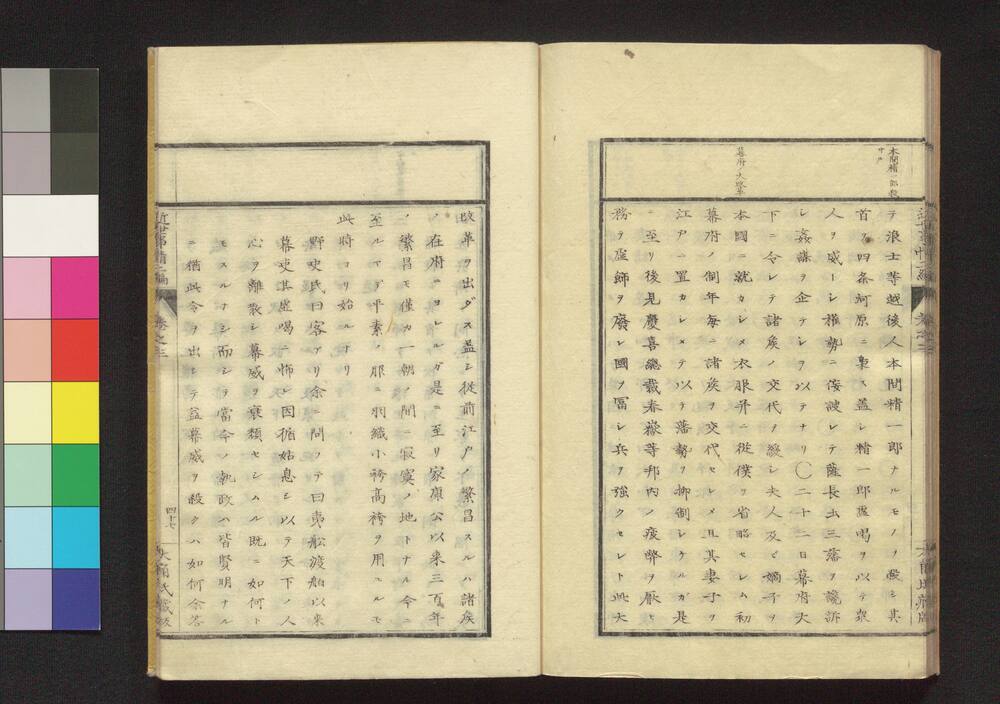 本間精一郎殺
サル
テ浪士等越後人本間精一郎ナルモノヲ殺シ其
首ヲ四条河原ニ梟ス蓋シ精一郎虚喝ヲ以テ衆
人ヲ威シ権勢ニ佞諛シテ薩長土三藩ヲ讒訴
シ姦謀ヲ企テシヲ以テナリ〇二十二日幕府大
下ニ令シテ諸矦ノ交代ヲ緩シ夫人及ヒ嫡子ヲ
幕府ノ大改革
本國ニ就カシメ衣服并ニ從僕ヲ省略セシム初
幕府ノ制年毎ニ諸矦ヲ交代セシメ且其妻子ヲ
江戸ニ置カシメテ以テ藩勢ヲ抑制シケルガ是
ニ至リ後見慶喜總裁春嶽等邦内ノ疲弊ヲ厭ヒ
務テ虚飾ヲ廢シ國ヲ冨シ兵ヲ強クセント此大
改革ヲ出ダス蓋シ從前江戸ノ繁昌スルハ諸矦
ノ在府ニヨレルガ是ニ至リ家康公以来三百年
ノ繁昌モ僅カ一朝ノ間ニ寂寞ノ地トナル今ニ
至ルマデ平素ノ服ニ羽織小袴高袴ヲ用ユルモ
此時ヨリ始ルナリ
野史氏曰客アリ余ニ問フテ曰夷舩渡舶以来
幕吏其虚喝ニ怖レ因循姑息シ以テ天下ノ人
心ヲ離散シ幕威ヲ衰頽セシムル既ニ如何ト
モスルナシ而シテ當今ノ執政ハ皆賢明ナル
ニ猶此令ヲ出シテ益幕威ヲ殺クハ如何余答
近世事情二編
巻之三
四十七